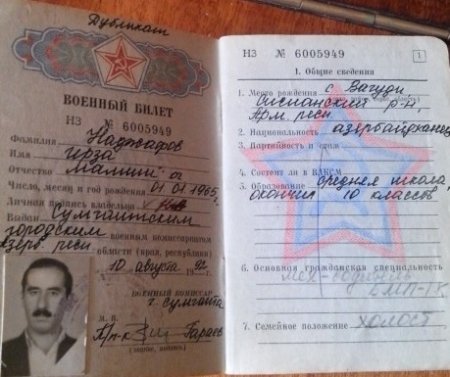 Дубликат
ВОЕННЫЙ БИЛЕТ
НЗ № 6005949
Фамилия Наджафов
Имя Ирза
Отчество Мамиш о.
Число, месяц и год рождения 01 01 1965
Личная подпись владельца
Выдан Сумгаитским
городским военным комиссариатом
Азерб. респ
области (края, республики)
10 августа 1992 г.
ВОЕННЫЙ КОМИССАР
г. Сумгаита
М. П.
П/п-к Гараев
(звание, подпись)
НЗ № 6005949
1
I. Общие сведения
1. Место рождения с. Вагуди
Сисианский р-н,
Арм. респ
2. Национальность азербайджанец
3. Партийность и стаж
4. Состоит ли в ВЛКСМ
5. Образование средняя школа,
окончил 10 классов
6. Основная гражданская специальность
7. Семейное положение холост